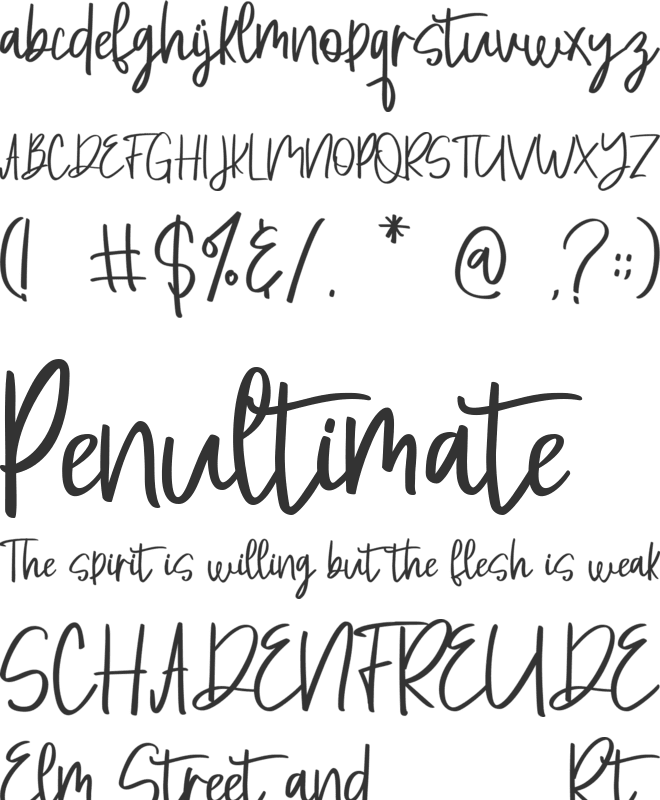 abcdefghijklmnopqrstuvwxyz
ABCDEFGHIJKLMNOPQRSTUVWXYZ
( #$%&/. * @ ,?::)
Penultimate
The spirit is willing but the flesh is weak
SCHADENFREUDE
Elm Street and Rt